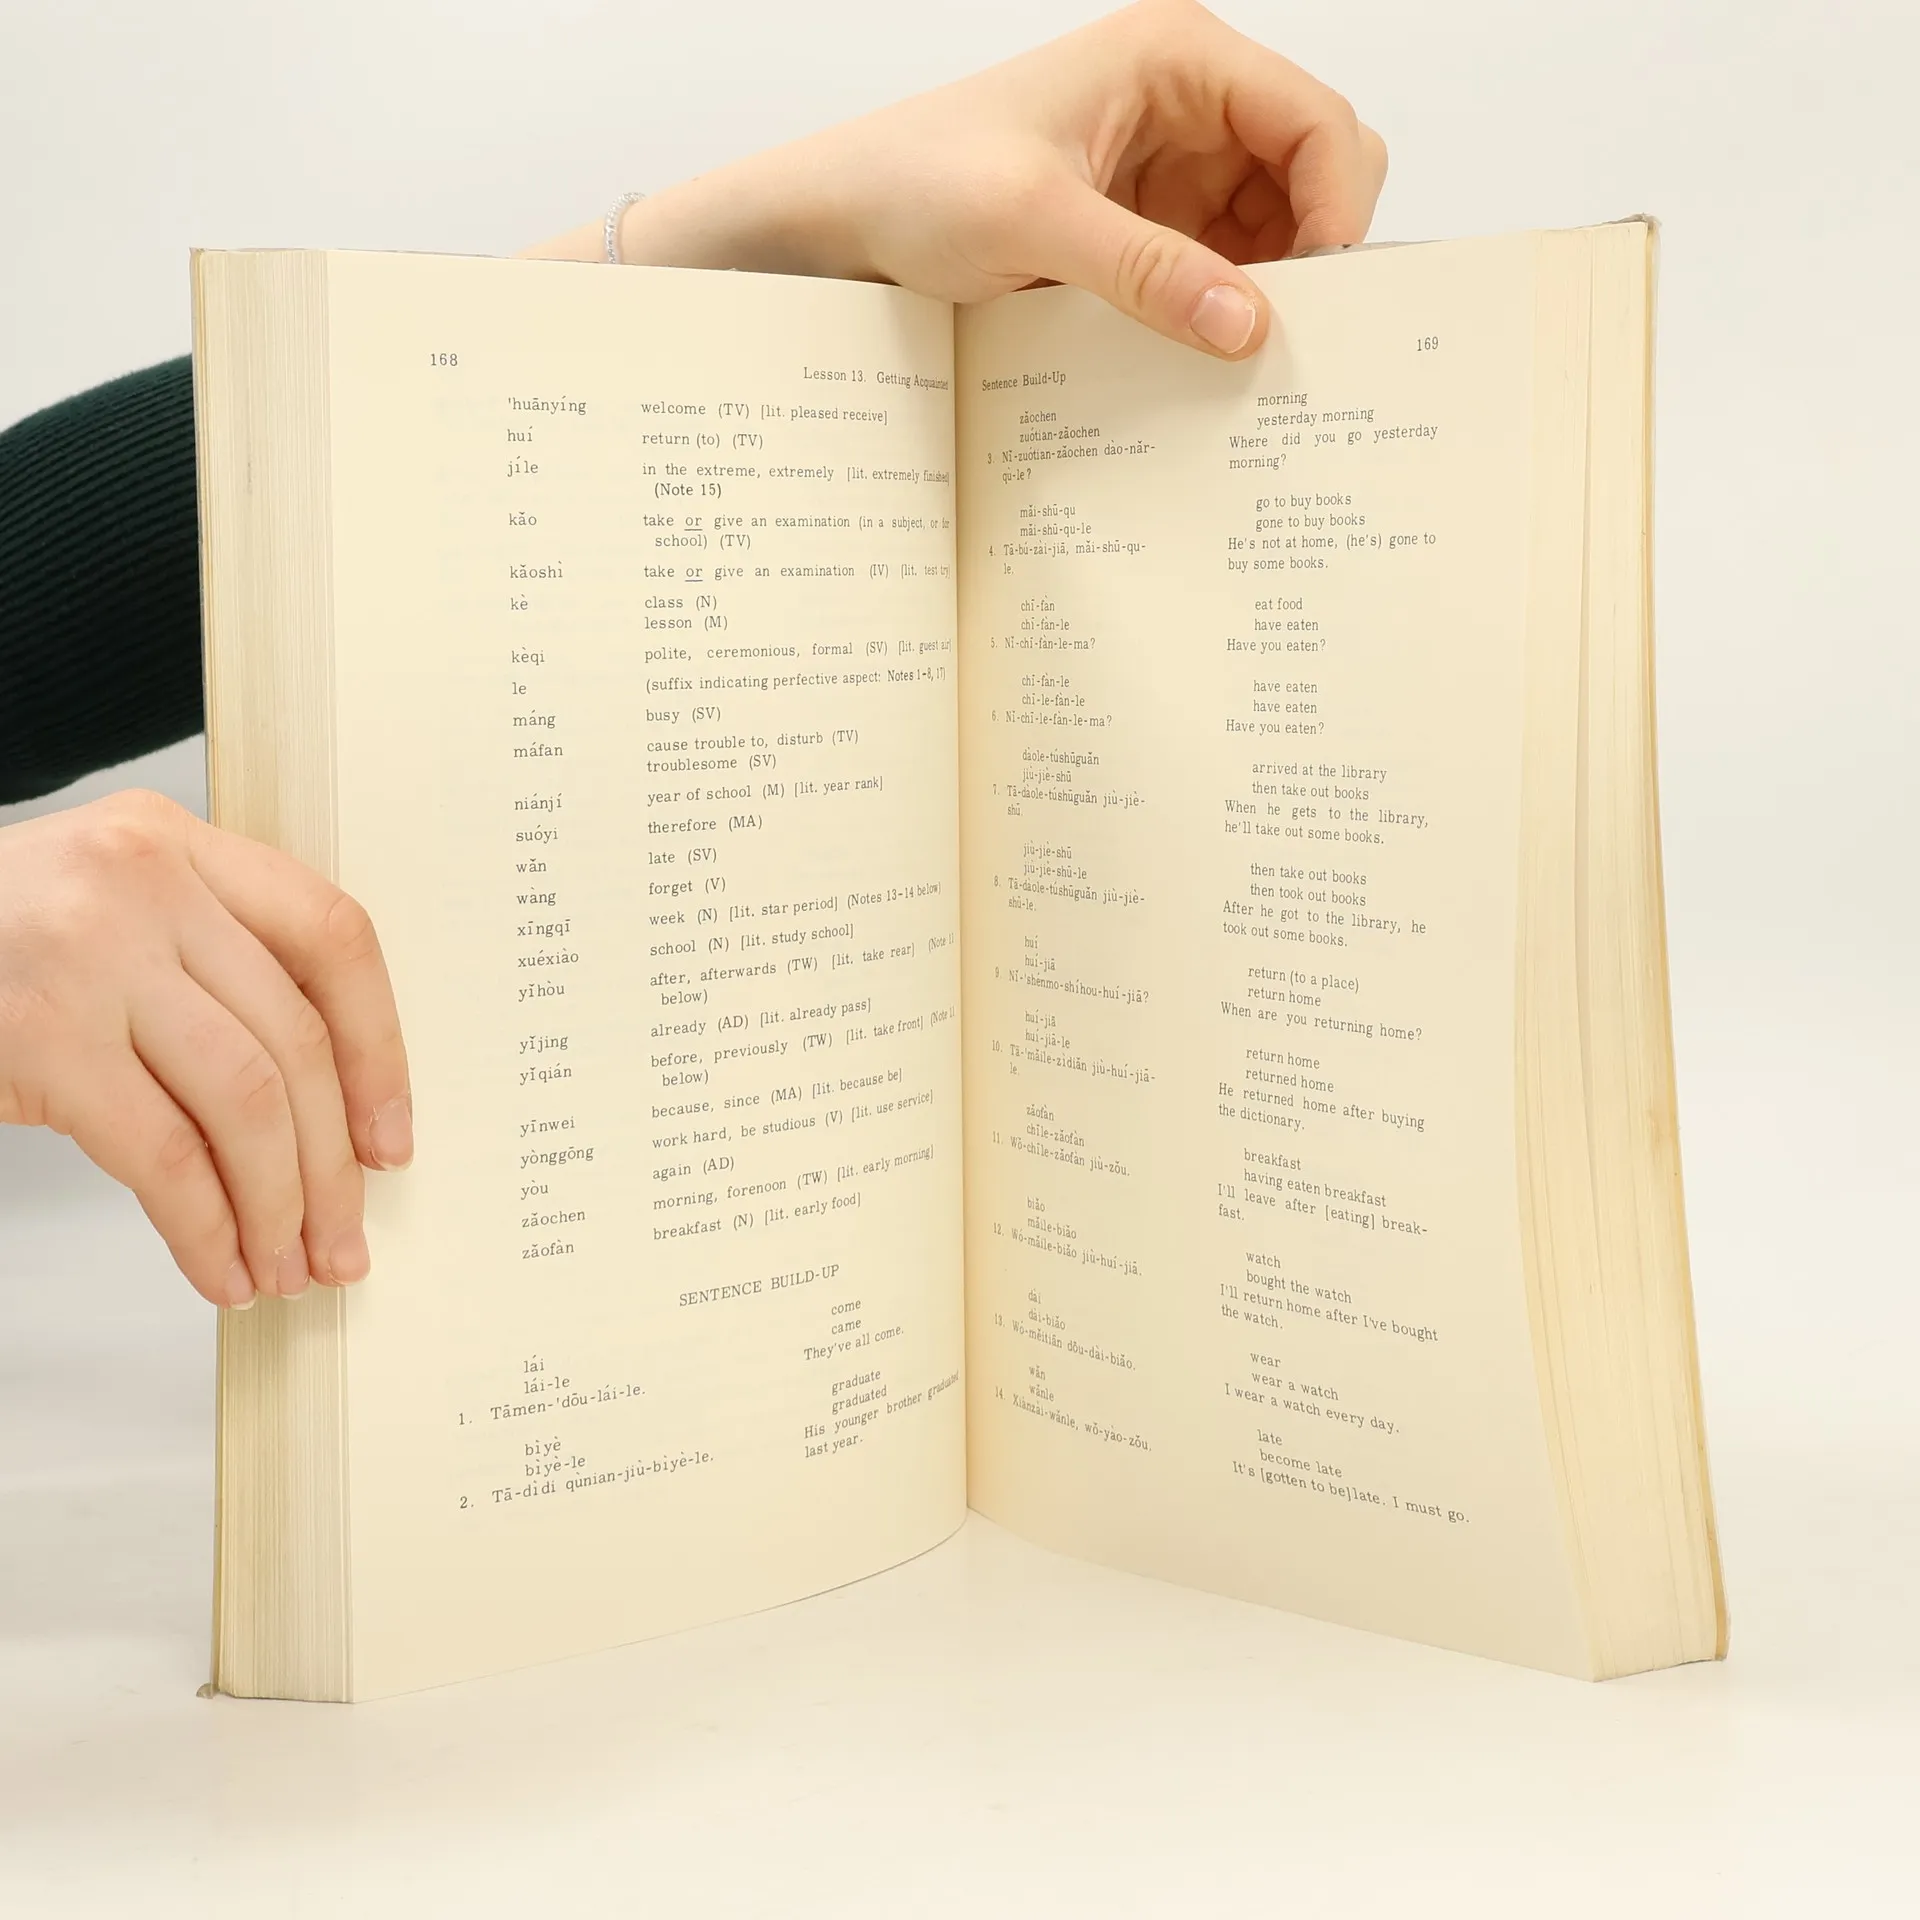 168
Lesson 13. Getting Acquainted
'huānyíng welcome (TV) [lit. pleased receive]
huí return (to) (TV)
jíle in the extreme, extremely [lit. extremely finished]
(Note 15)
kǎo take or give an examination (in a subject, or for
school) (TV)
kǎoshì take or give an examination (IV) [lit. test try]
kè class (N)
lesson (M)
kèqi polite, ceremonious, formal (SV) [lit. guest air]
le (suffix indicating perfective aspect: Notes 1-8, 17)
máng busy (SV)
máfan cause trouble to, disturb (TV)
troublesome (SV)
niánjí year of school (M) [lit. year rank]
suóyi therefore (MA)
wǎn late (SV)
wàng forget (V)
xīngqī week (N) [lit. star period] (Notes 13-14 below)
xuéxiào school (N) [lit. study school]
yǐhòu after, afterwards (TW) [lit. take rear] (Note 11
below)
yǐjing already (AD) [lit. already pass]
yǐqián before, previously (TW) [lit. take front] (Note 11
below)
yīnwei because, since (MA) [lit. because be]
yònggōng work hard, be studious (V) [lit. use service]
yòu again (AD)
zǎochen morning, forenoon (TW) [lit. early morning]
zǎofàn breakfast (N) [lit. early food]
SENTENCE BUILD-UP
lái come
lái-le came
1. Tāmen-'dōu-lái-le. They've all come.
bìyè graduate
bìyè-le graduated
2. Tā-dìdi qùnian-jiù-bìyè-le. His younger brother graduated
last year.
169
Sentence Build-Up
zǎochen morning
zuótian-zǎochen yesterday morning
3. Nǐ-zuótian-zǎochen dào-nǎr- Where did you go yesterday
qù-le? morning?
mǎi-shū-qu go to buy books
mǎi-shū-qu-le gone to buy books
4. Tā-bú-zài-jiā, mǎi-shū-qu- He's not at home, (he's) gone to
le. buy some books.
chī-fàn eat food
chī-fàn-le have eaten
5. Nǐ-chī-fàn-le-ma? Have you eaten?
chī-fàn-le have eaten
chī-le-fàn-le have eaten
6. Nǐ-chī-le-fàn-le-ma? Have you eaten?
dàole-túshūguǎn arrived at the library
jiù-jiè-shū then take out books
7. Tā-dàole-túshūguǎn jiù-jiè- When he gets to the library,
shū. he'll take out some books.
jiù-jiè-shū then take out books
jiù-jiè-shū-le then took out books
8. Tā-dàole-túshūguǎn jiù-jiè- After he got to the library, he
shū-le. took out some books.
huí return (to a place)
huí-jiā return home
9. Nǐ-'shénmo-shíhou-huí-jiā? When are you returning home?
huí-jiā return home
huí-jiā-le returned home
10. Tā-'mǎile-zìdiǎn jiù-huí-jiā- He returned home after buying
le. the dictionary.
zǎofàn breakfast
chīle-zǎofàn having eaten breakfast
11. Wǒ-chīle-zǎofàn jiù-zǒu. I'll leave after [eating] break-
fast.
biǎo watch
mǎile-biǎo bought the watch
12. Wǒ-mǎile-biǎo jiù-huí-jiā. I'll return home after I've bought
the watch.
dài wear
dài-biǎo wear a watch
13. Wǒ-měitiān dōu-dài-biǎo. I wear a watch every day.
wǎn late
wǎnle become late
14. Xiànzài-wǎnle, wǒ-yào-zǒu. It's [gotten to be] late. I must go.